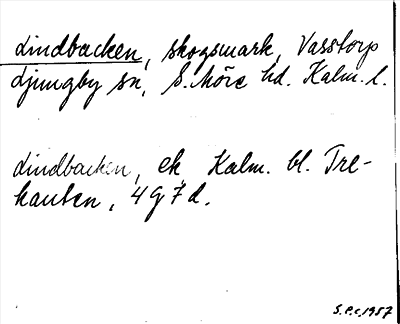 Lindbacken, skogsmark, Vasstorp
Ljungby sn, S. Möre hd. Kalm. l.
Lindbacken, ek. Kalm. bl. Tre-
kanten, 4 g 7 d.
S.P.c. 1957